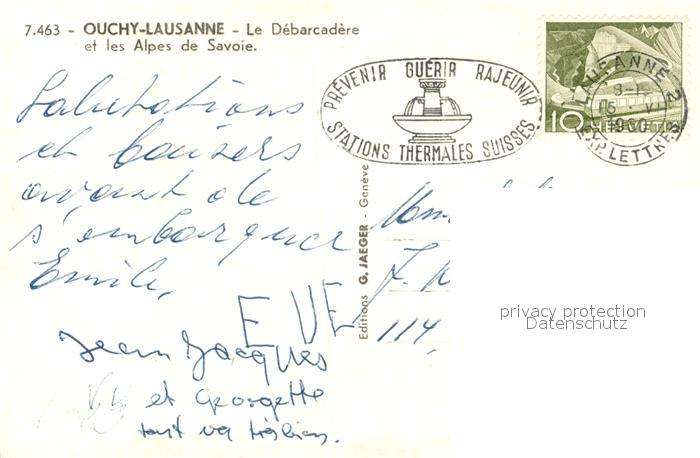 7.463 - OUCHY-LAUSANNE - Le Débarcadère
et les Alpes de Savoie.
PRÉVENIR GUÉRIR RAJEUNIR
STATIONS THERMALES SUISSES
LAUSANNE 2
1960
EXP. LETTRES
10 HELVETIA
Salutations
et baisers
avant de
s'embarquer
Emile,
EVE
Jean Jacques
et Georgette
tout va très bien.
Editions G. JAEGER - Genève
114,
privacy protection
Datenschutz